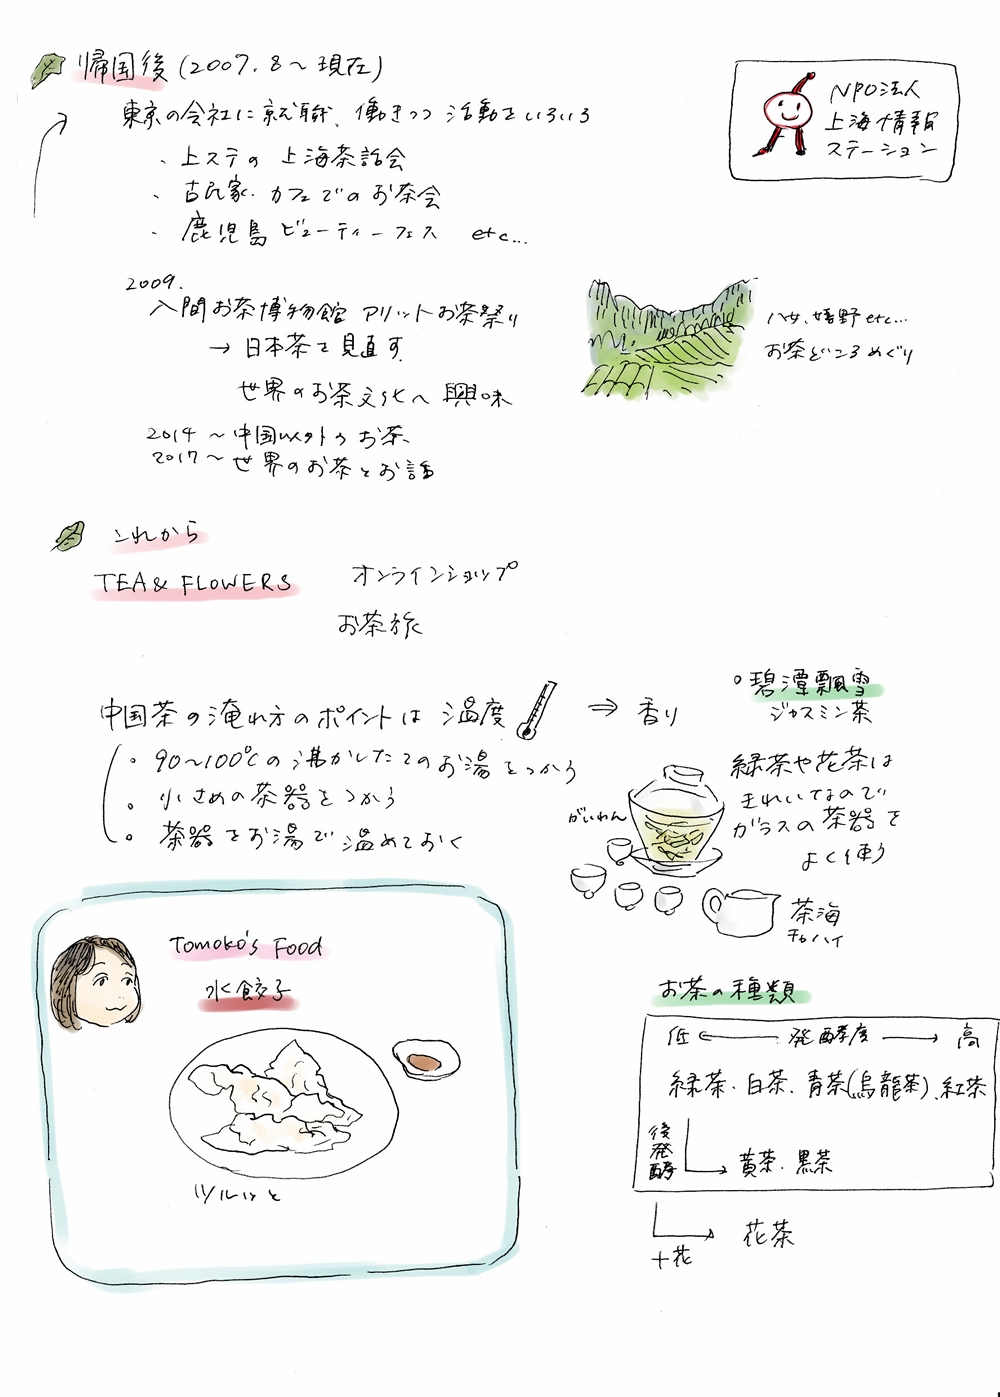 帰国後 (2007.8〜現在)
東京の会社に就職、働きつつ活動をいろいろ
・上ステの上海茶話会
・古民家・カフェでのお茶会
・鹿児島ビューティーフェス etc...
NPO法人
上海情報
ステーション
2009.
入間お茶博物館 アリットお茶祭り
→ 日本茶を見直す
世界のお茶文化へ興味
2014〜中国以外のお茶、
2017〜世界のお茶とお話
八女、嬉野etc...
お茶どころめぐり
これから
TEA & FLOWERS オンラインショップ
お茶旅
中国茶の淹れ方のポイントは 温度 ⇒ 香り
。90〜100℃の沸かしたてのお湯をつかう
。小さめの茶器をつかう
。茶器をお湯で温めておく
。碧潭飄雪
ジャスミン茶
緑茶や花茶は
きれいなので
ガラスの茶器を
よく使う
がいわん
茶海
チャハイ
Tomoko's Food
水餃子
ツルッと
お茶の種類
低 ← 発酵度 → 高
緑茶・白茶・青茶(烏龍茶)、紅茶
後発酵
黄茶・黒茶
+花
花茶